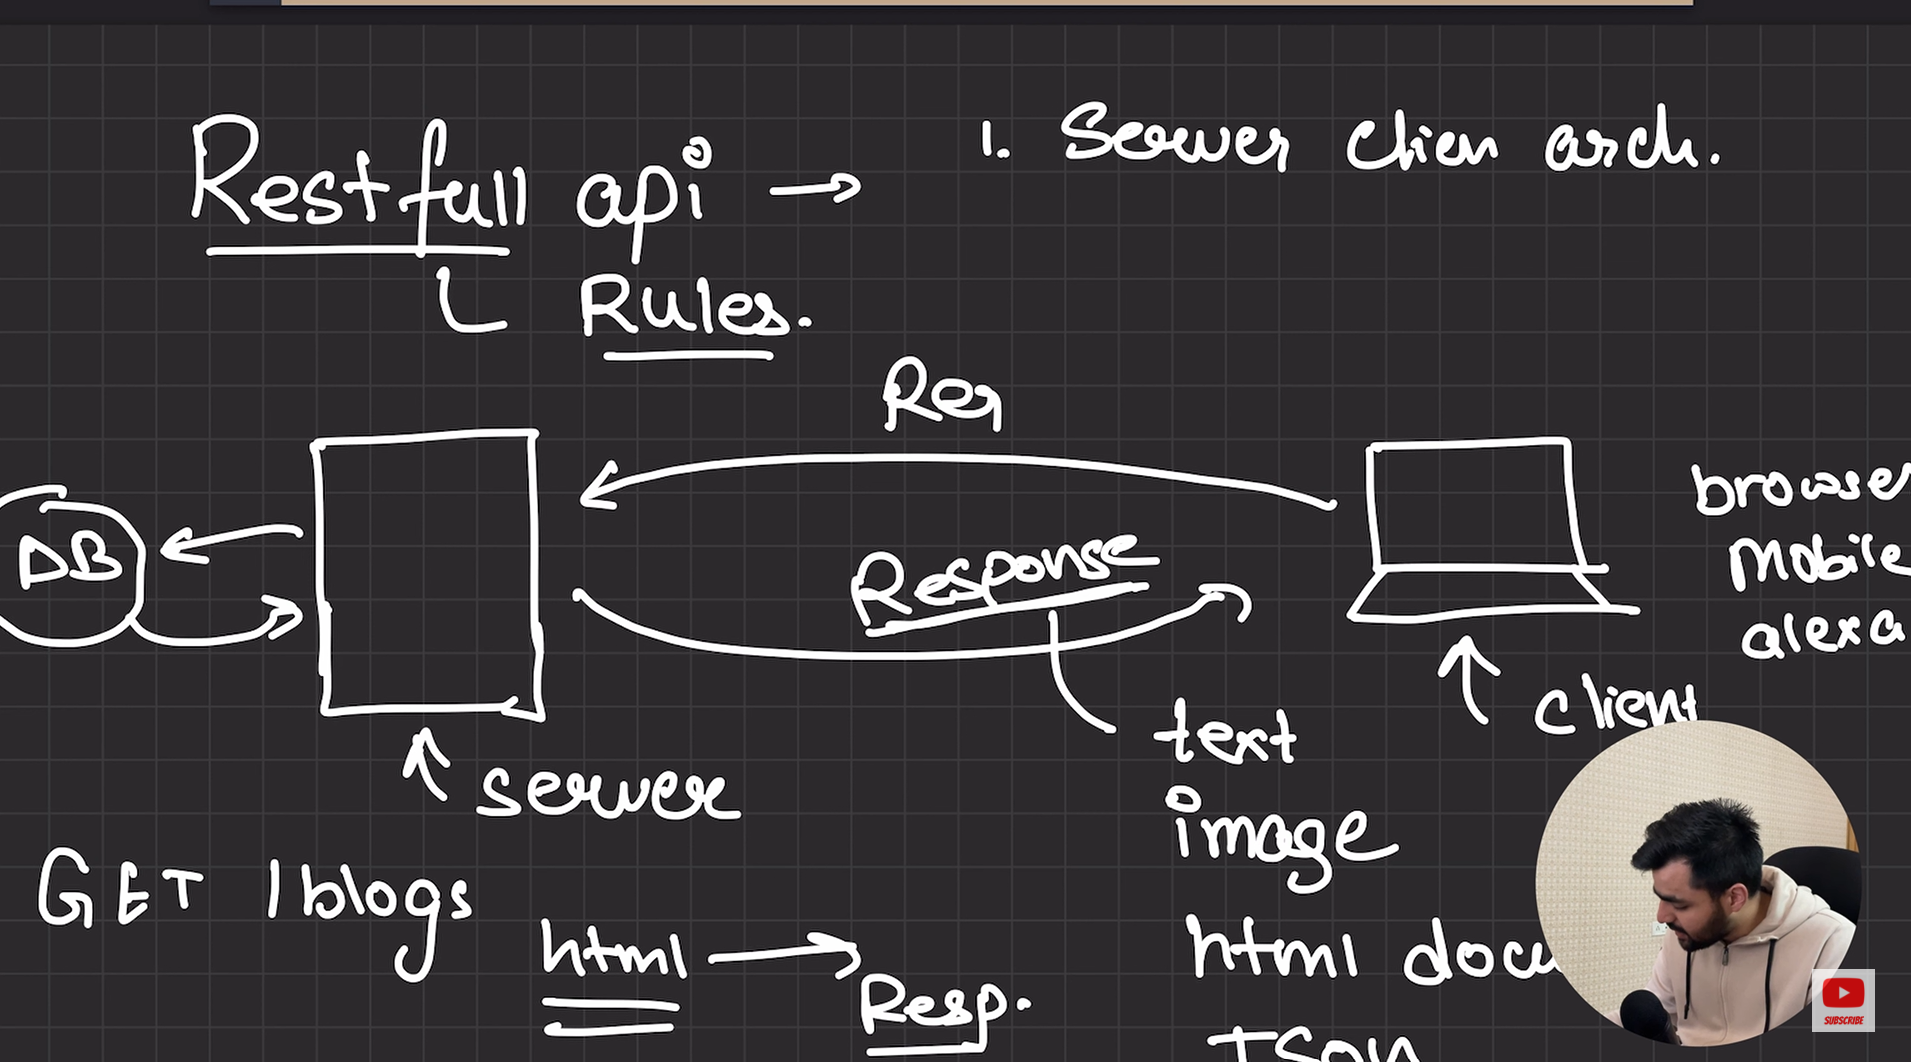 Restfull api →
1. Server clien arch.
Rules.
Req
DB
Response
browser
mobile
alexa
client
server
text
image
GET /blogs
html → Resp.
html docu
JSON
SUBSCRIBE